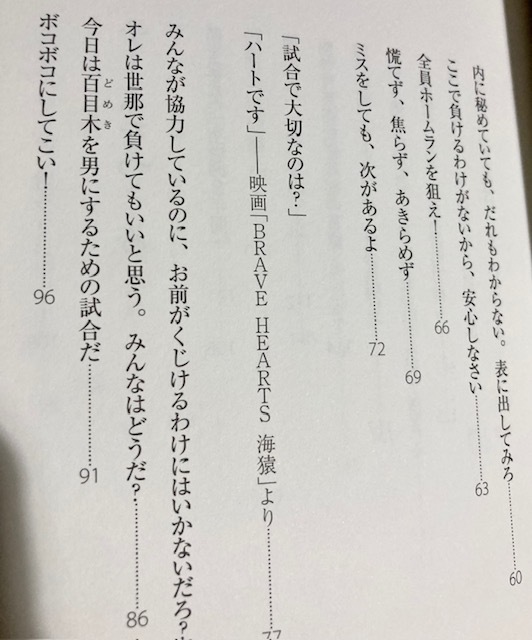 内に秘めていても、だれもわからない。表に出してみろ…………60
ここで負けるわけがないから、安心しなさい…………63
全員ホームランを狙え！…………66
慌てず、焦らず、あきらめず…………69
ミスをしても、次があるよ…………72
「試合で大切なのは？」
「ハートです」――映画「BRAVE HEARTS 海猿」より…………77
みんなが協力しているのに、お前がくじけるわけにはいかないだろ？
オレは世那で負けてもいいと思う。みんなはどうだ？…………86
今日は百目木を男にするための試合だ…………91
どめき
ボコボコにしてこい！…………96